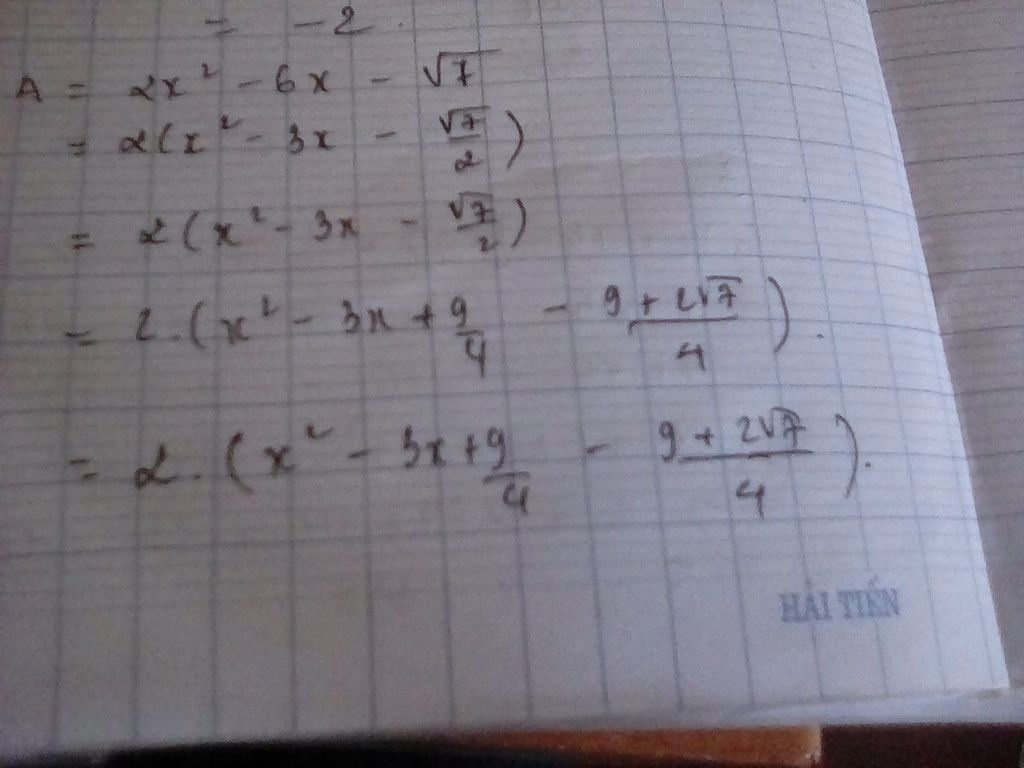 = -2.
A = 2x² - 6x - √7
= 2(x² - 3x - √7/2)
= 2(x² - 3x - √7/2)
= 2.(x² - 3x + 9/4 - (9 + 2√7)/4).
= 2.(x² - 3x + 9/4 - (9 + 2√7)/4).
HẢI TIẾN